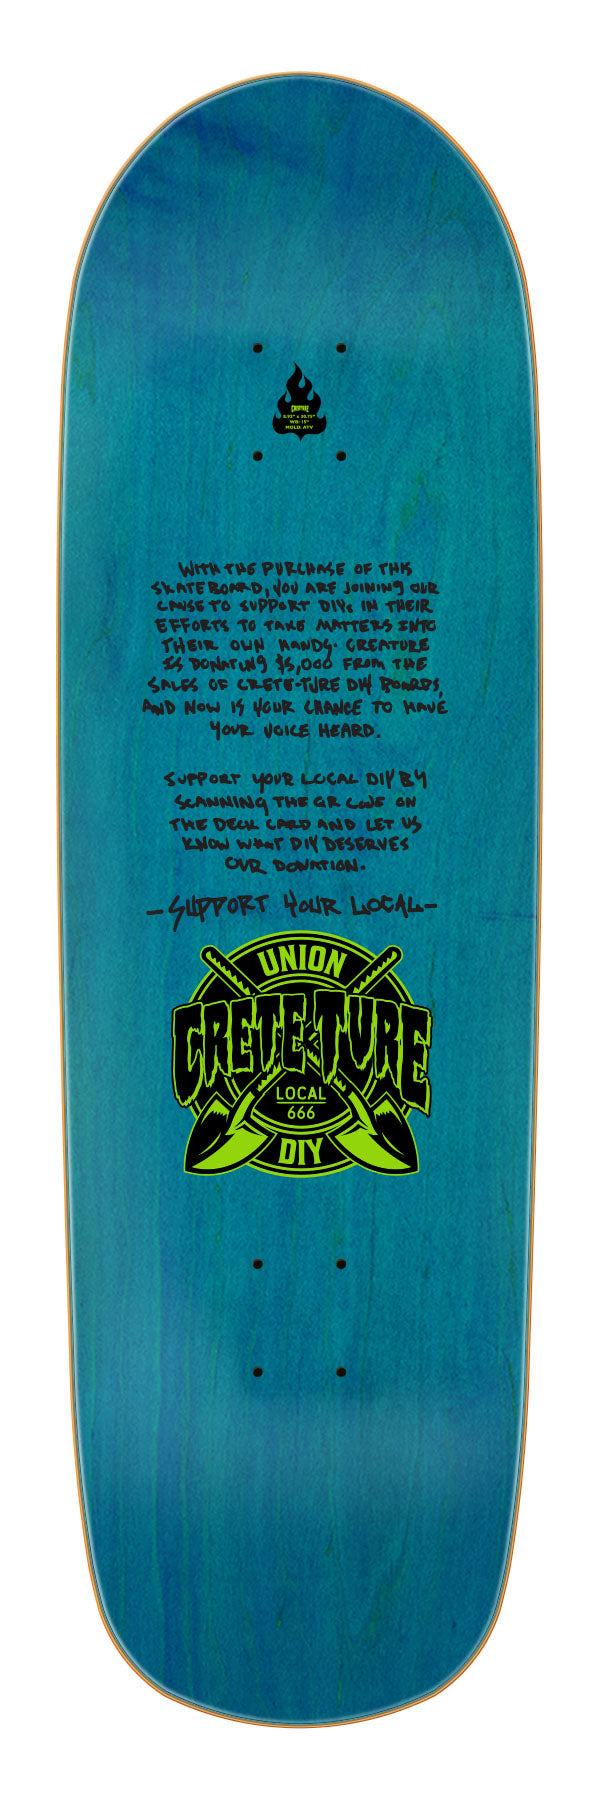 CREATURE
8.93" x 30.75"
WB: 15"
MOLD: ATV
WITH THE PURCHASE OF THIS
SKATEBOARD, YOU ARE JOINING OUR
CAUSE TO SUPPORT DIYs IN THEIR
EFFORTS TO TAKE MATTERS INTO
THEIR OWN HANDS. CREATURE
IS DONATING $5,000 FROM THE
SALES OF CRETE-TURE DIY BOARDS,
AND NOW IS YOUR CHANCE TO HAVE
YOUR VOICE HEARD.
SUPPORT YOUR LOCAL DIY BY
SCANNING THE QR CODE ON
THE DECK CARD AND LET US
KNOW WHAT DIY DESERVES
OUR DONATION.
-SUPPORT YOUR LOCAL-
UNION
CRETE-TURE
LOCAL
666
DIY